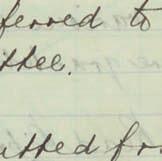 ferred to
ttee.
itted fr